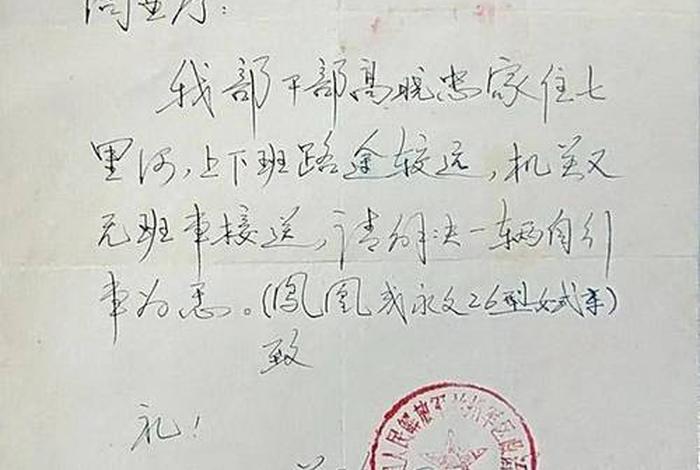 商业厅:
我部干部高晓忠家住七
里河,上下班路途较远,机关又
无班车接送,请解决一辆自行
车为。(鳳凰或永久26型女式车)
致
礼!
人民解放军兰州军区